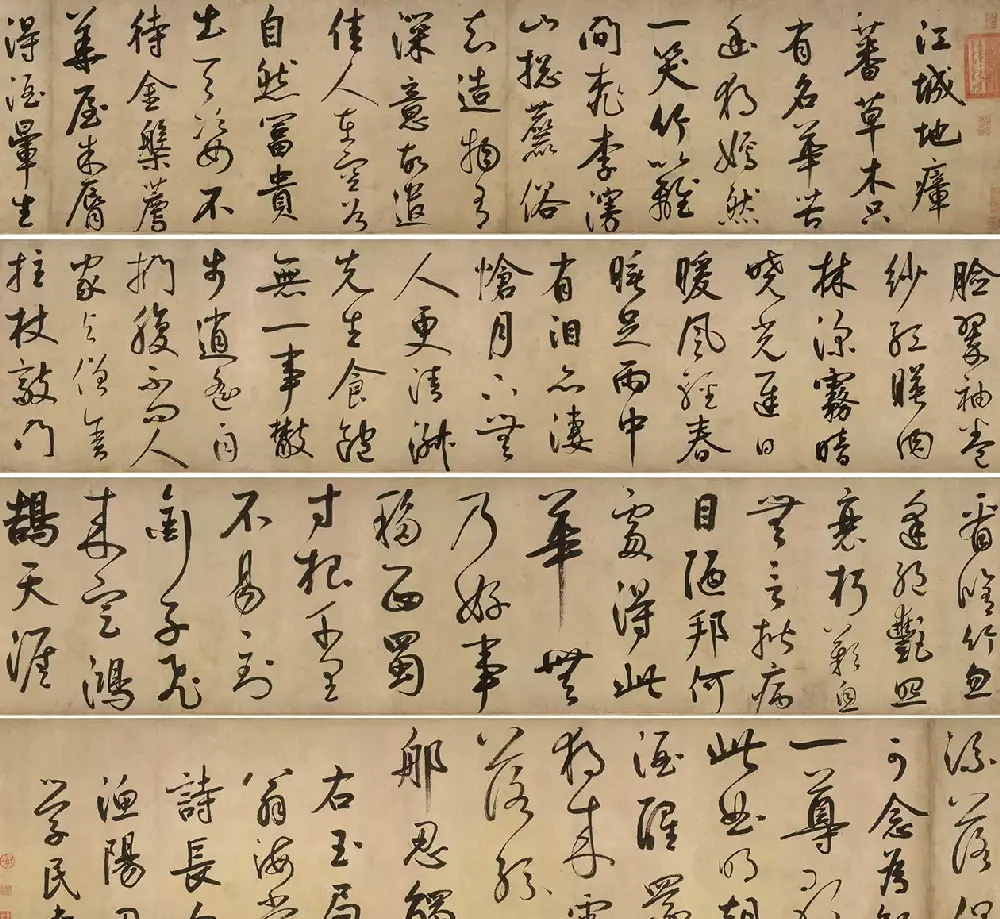 江城地瘴
蕃草木只
有名華苦
幽獨嫣然
一笑竹籬
間桃李漫
山總麤俗
知造物有
深意故遣
佳人在空谷
自然富貴
出天姿不
待金盤薦
華屋朱脣
得酒暈生
臉翠袖卷
紗紅暎肉
林深霧暗
曉光遲日
暖風輕春
睡足雨中
有淚亦淒
愴月下無
人更清淑
先生食飽
無一事散
步逍遙自
捫腹不問人
家與僧舍
拄杖敲門
看脩竹忽
逢絕艷照
衰朽歎息
無言揩病
目陋邦何
處得此
華無
乃好事
移西蜀
寸根千里
不易到
銜子飛
來定鴻
鵠天涯
流落俱
可念為
一尊歌
此曲明朝
酒醒還
獨來雪
落紛
那忍觸
右玉局
翁海棠
詩長
漁陽
學民